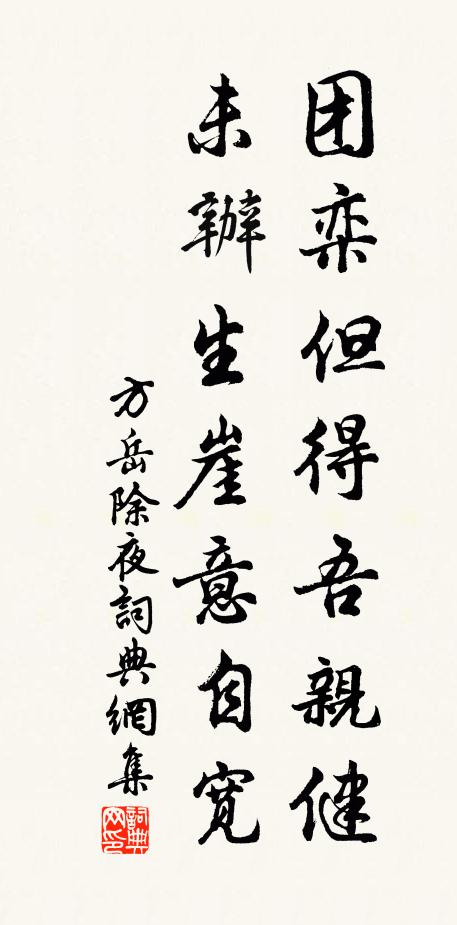 团栾但得吾親健
未辦生崖意自寬
方岳除夜詞典網集
詞典网印